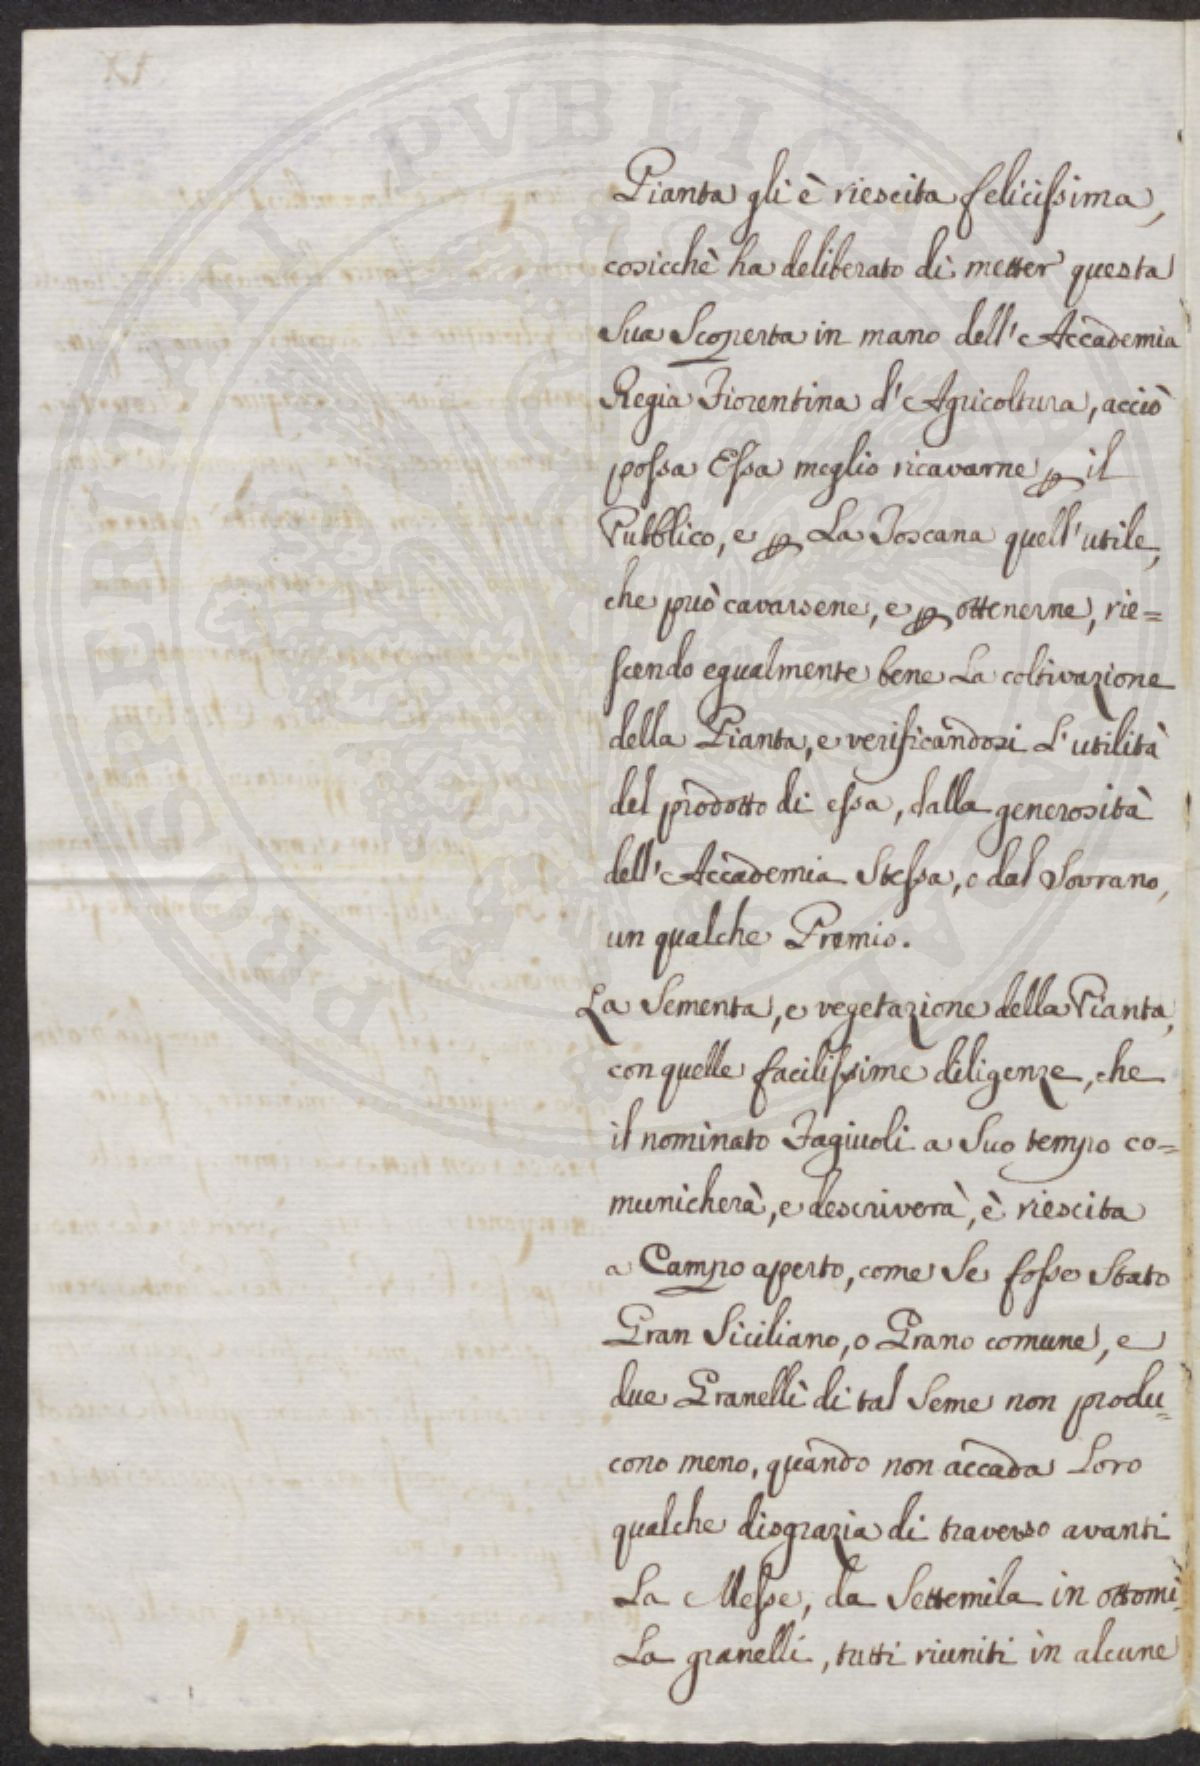 Pianta gli è riescita felicissima,
cosicchè ha deliberato di metter questa
sua Scoperta in mano dell'Accademia
Regia Fiorentina d'Agricoltura, acciò
possa Essa meglio ricavarne p il
Pubblico, e p La Toscana quell'utile,
che può cavarsene, e p ottenerne, rie=
scendo egualmente bene La coltivazione
della Pianta, e verificandosi L'utilità
del prodotto di essa, dalla generosità
dell'Accademia Stessa, o dal Sovrano,
un qualche Premio.
La Sementa, e vegetazione della Pianta,
con quelle facilissime diligenze, che
il nominato Fagiuoli a Suo tempo co=
municherà, e descriverà, è riescita
a Campo aperto, come Se fosse Stato
Gran Siciliano, o Grano comune, e
due Granelli di tal Seme non produ=
cono meno, quando non accada Loro
qualche disgrazia di traverso avanti
La Messe, da Settemila in ottomi=
La granelli, tutti riuniti in alcune
PROSPERITATI PVBLICAE AVGENDAE